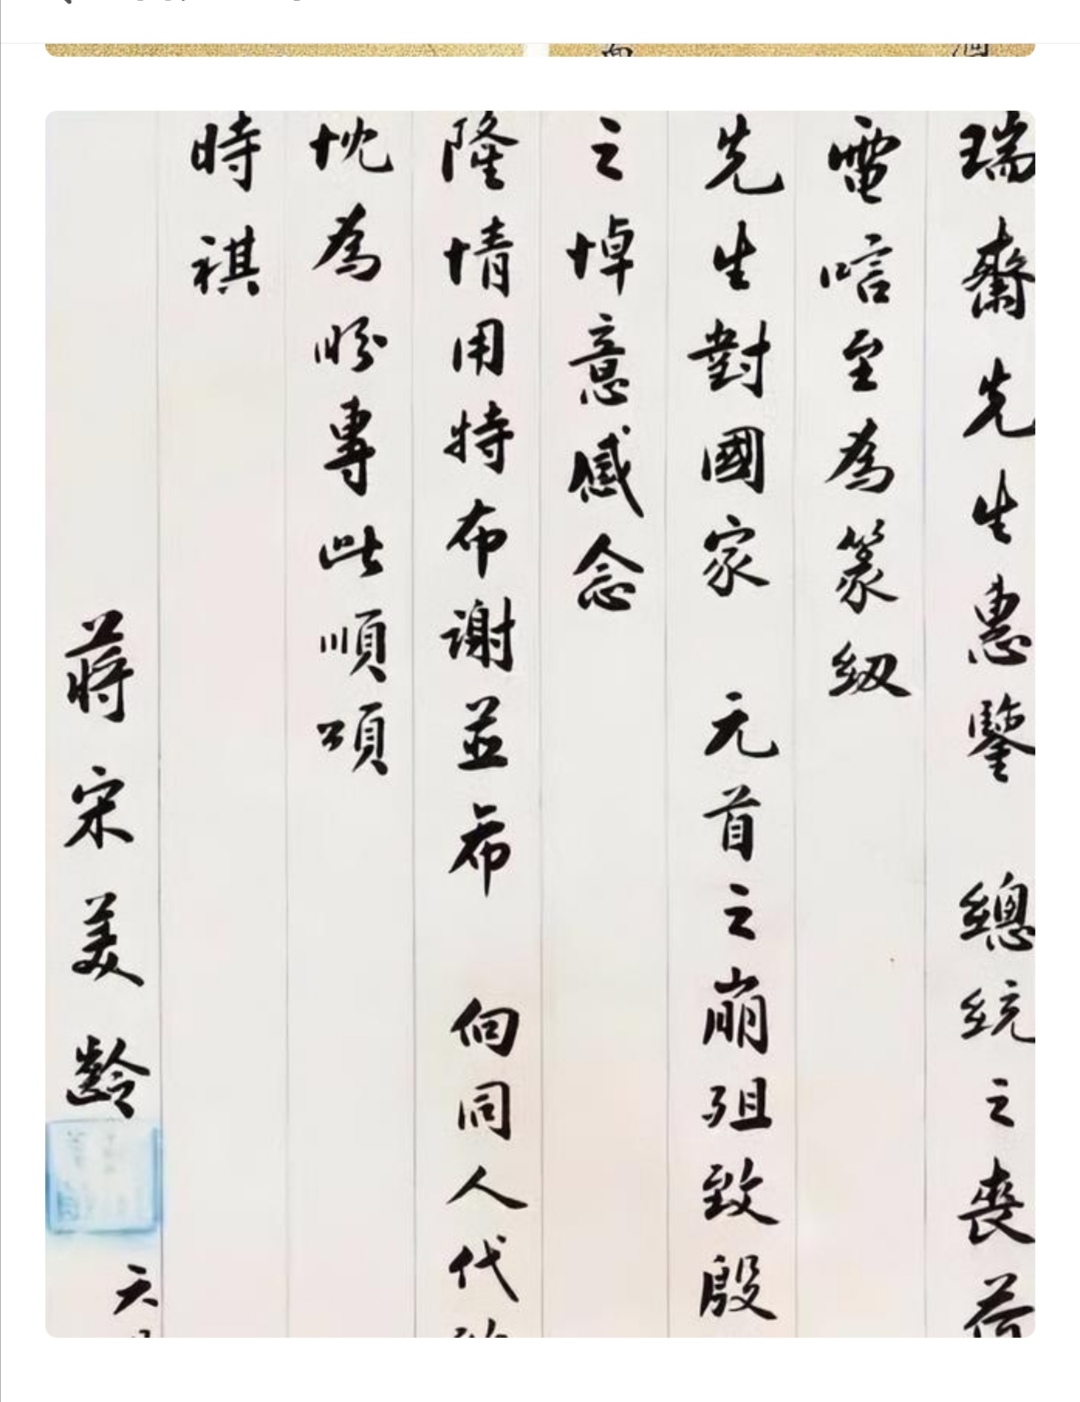 瑞齋先生惠鑒 總統之喪荷
電唁至為篆紉
先生對國家 元首之崩殂致殷
之悼意感念
隆情用特布謝並希 向同人代
忱為盼專此順頌
時祺
蔣宋美齡